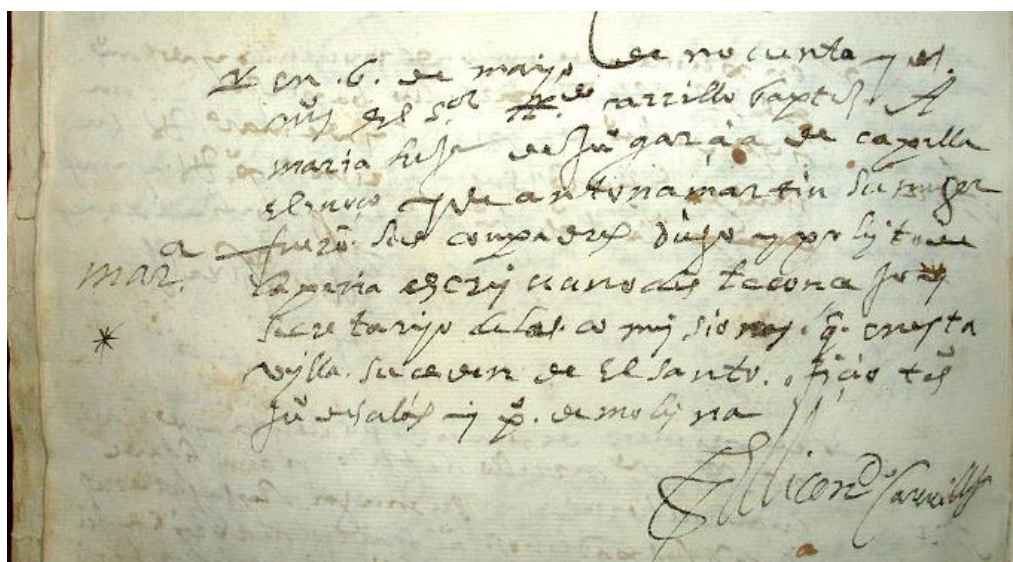 en .6. de mayo de nobenta y
del s.or carrillo baptizo A
maria hija de Ju.o garcia de capilla
el moço y de antona martin su muger
fuerō. sus compadres diego ypolito de
mar.a
la peria escriuano de
secretario de las comysiones. q̄. en esta
villa. suceden de El santo. oficio tēs
Ju.o de y p.o de molyna
El licen.do Carrillo